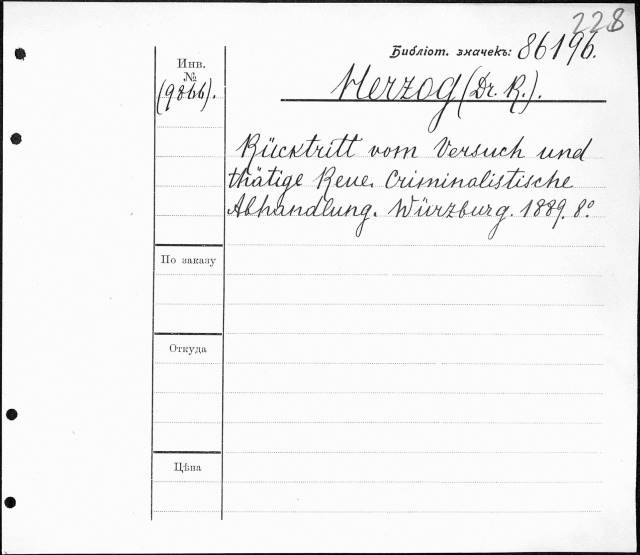 228
Библіот. значекъ: 86196.
Инв.
№
(9866).
Herzog (Dr. R.).
Rücktritt vom Versuch und
thätige Reue. Criminalistische
Abhandlung. Würzburg. 1889. 8°.
По заказу
Откуда
Цѣна